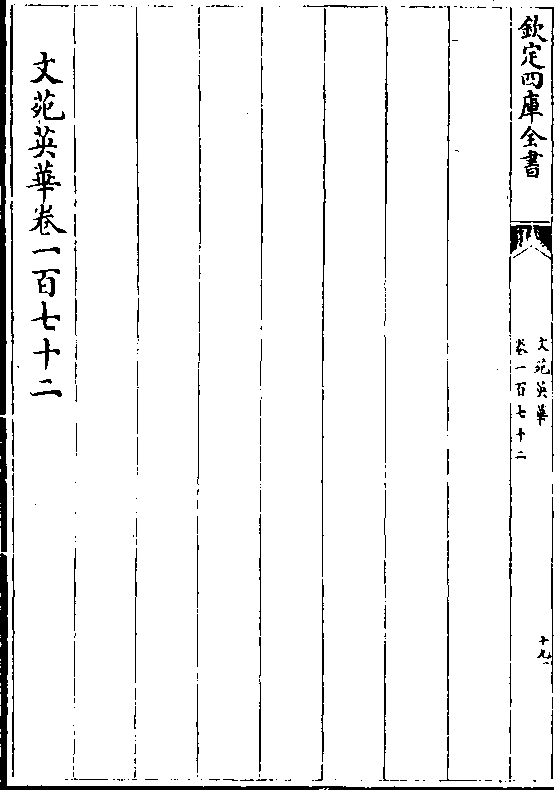 欽定四庫全書
文苑英華
卷一百七十二
十九
文苑英華卷一百七十二